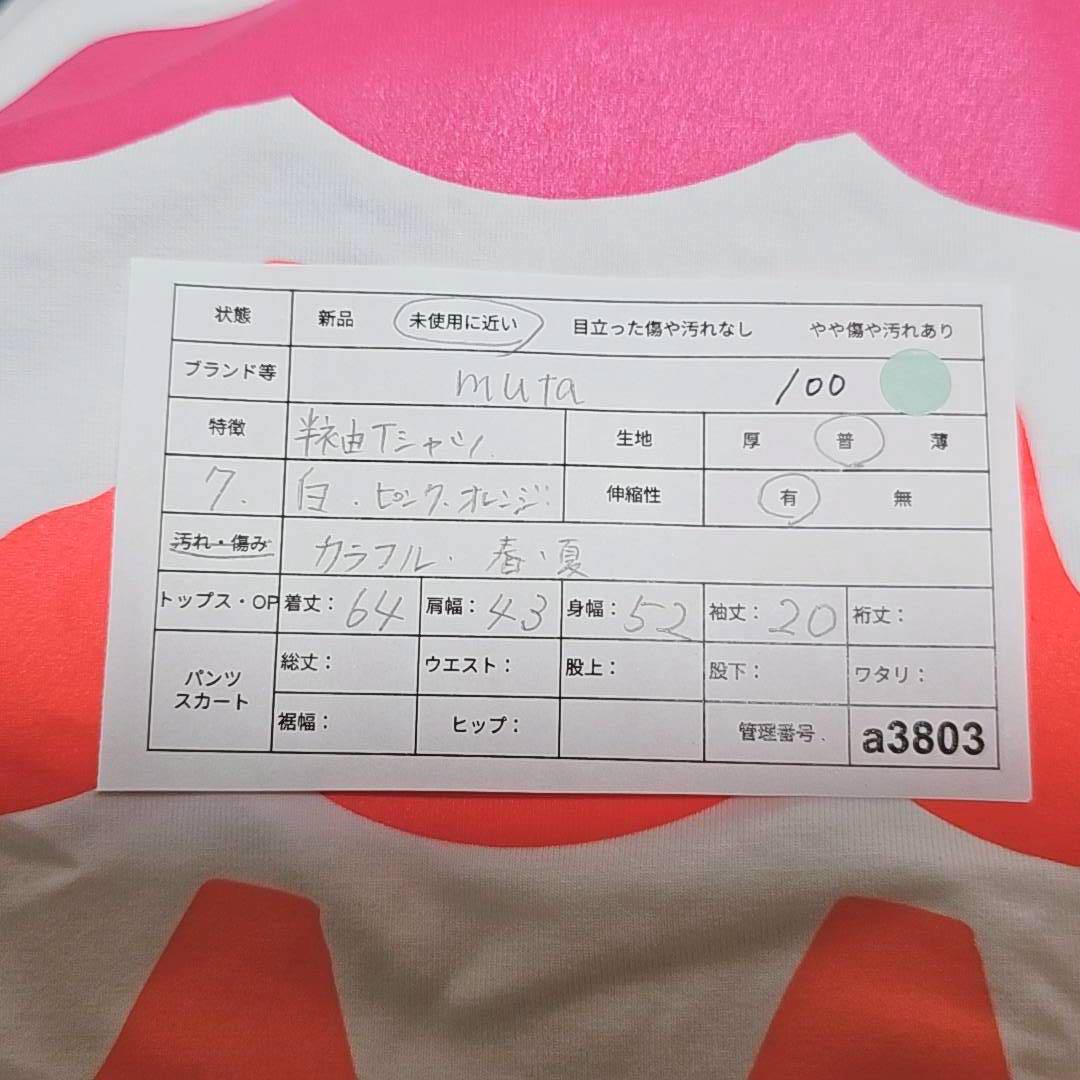 状態 新品 未使用に近い 目立った傷や汚れなし やや傷や汚れあり
ブランド等 muta 100
特徴 半袖Tシャツ. 生地 厚 普 薄
7. 白.ピンク.オレンジ. 伸縮性 有 無
汚れ・傷み カラフル.春.夏
トップス・OP 着丈:64 肩幅:43 身幅:52 袖丈:20 裄丈:
パンツ スカート 総丈: ウエスト: 股上: 股下: ワタリ:
裾幅: ヒップ: 管理番号. a3803